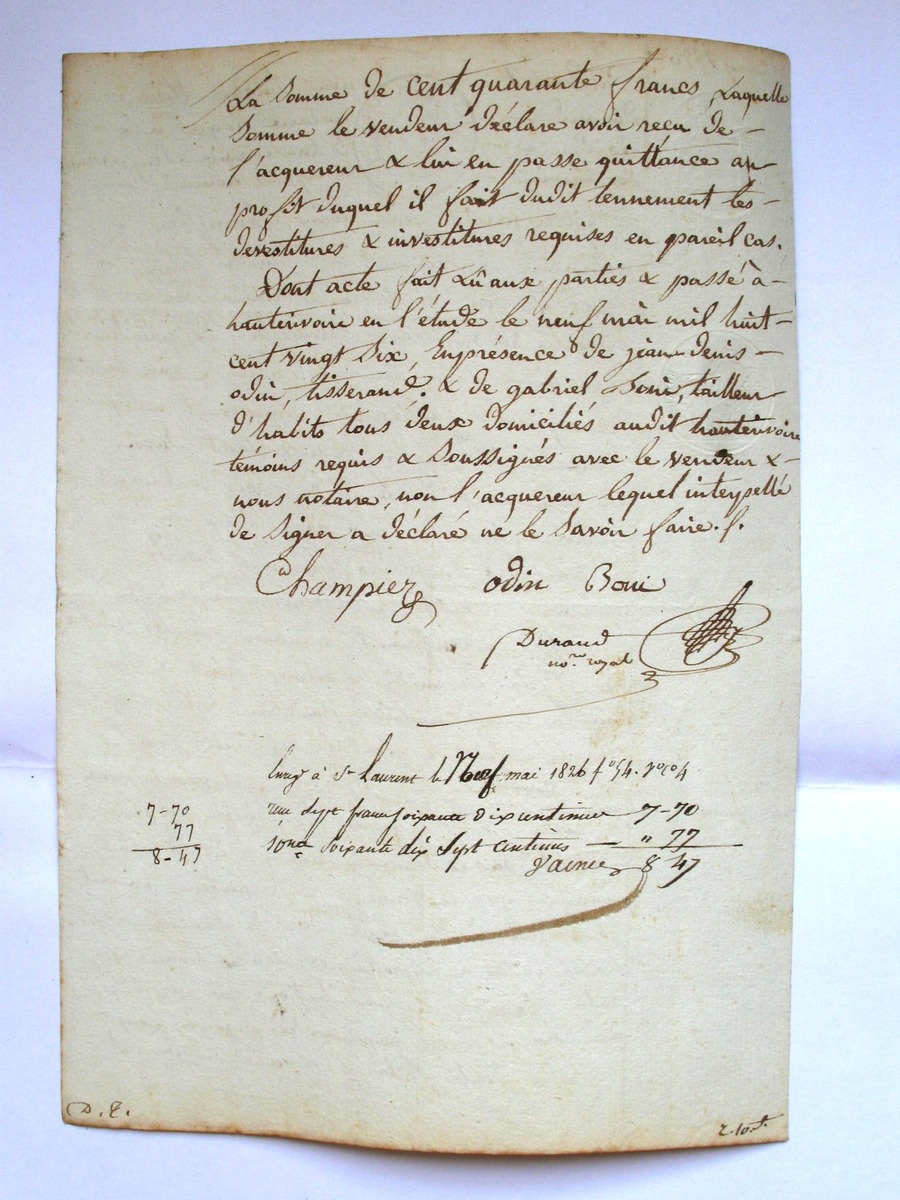 La somme de cent quarante francs Laquelle
somme le vendeur déclare avoir recu de -
l'acquereur & lui en passe quittance au
profit duquel il fait dudit tennement les -
devestitures & investitures requises en pareil cas.
Dont acte fait Lû aux parties & passé à -
hauterivoire en l'étude le neuf mai mil huit -
cent vingt six, Enprésence de jean denis -
odin, tisserand, & de gabriel Boni, tailleur
d'habits tous deux domiciliés audit hauterivoire
témoins requis & soussignés avec le vendeur & -
nous notaire, non l'acquereur lequel interpellé
de signer a déclaré ne le savoir faire. /.
Champier odin Boni
Durand
no.re royal
Enreg à St Laurent le Neuf mai 1826 fo 54. Vo co 4
reçu sept francs soixante dix centimes 7-70
10me soixante dix sept centimes — " 77
8 47
7-70
77
8-47
D. E.